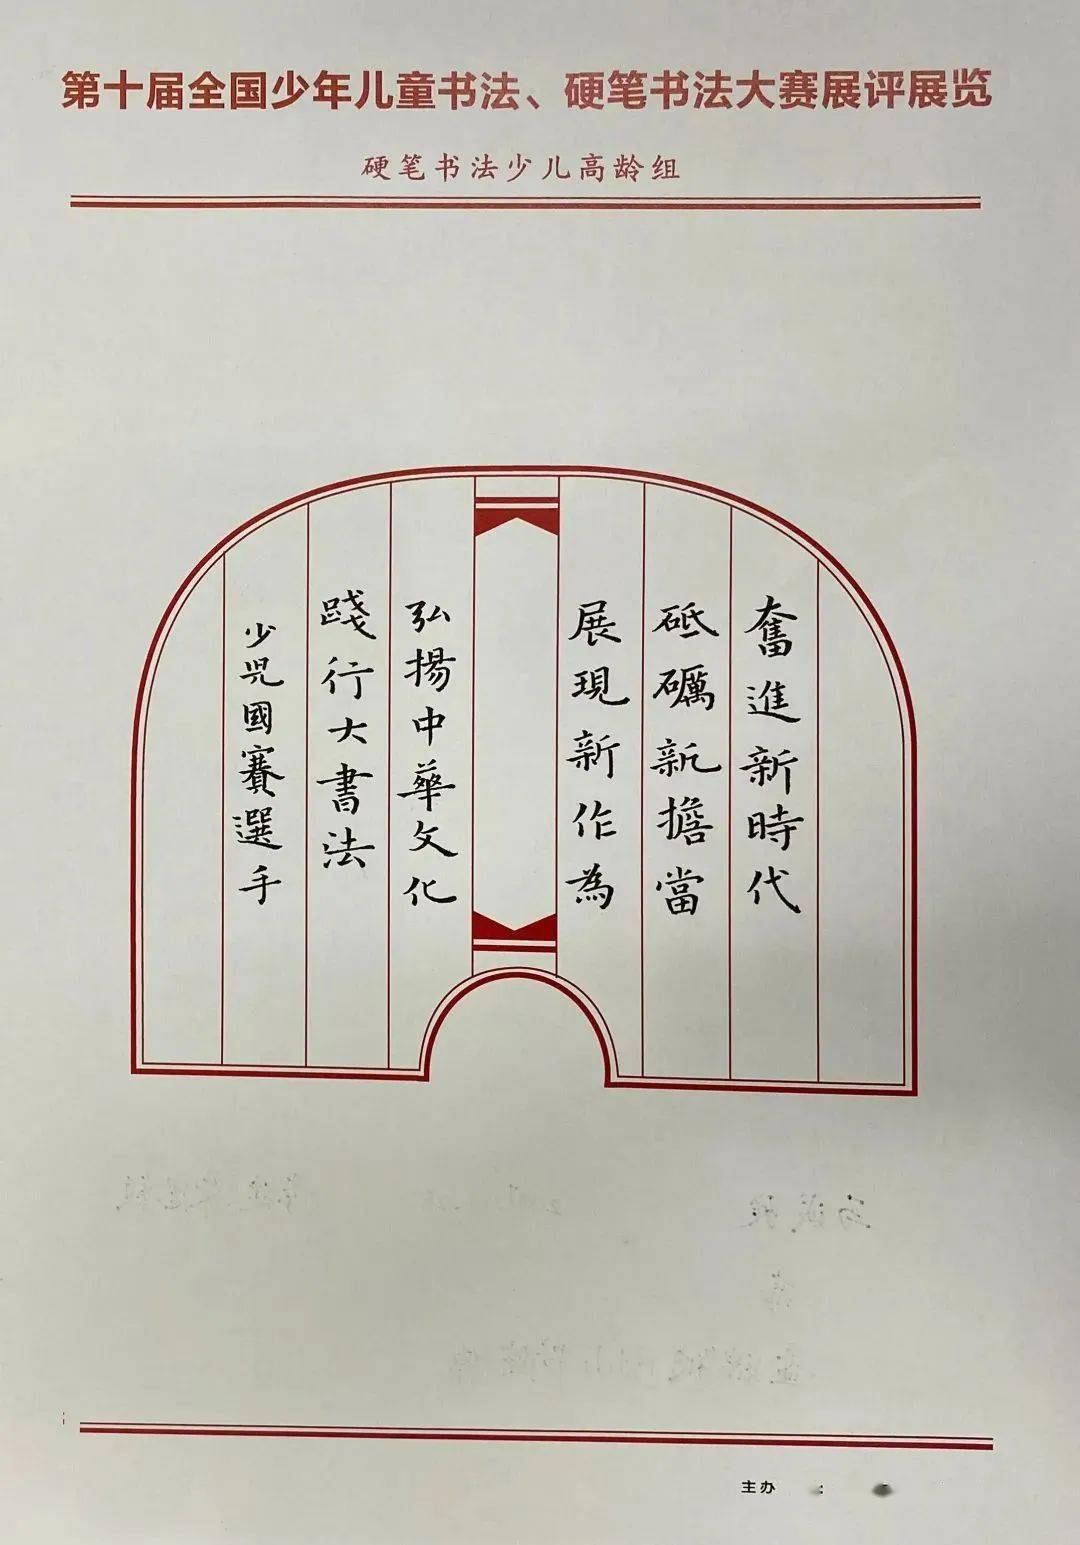 第十届全国少年儿童书法、硬笔书法大赛展评展览
硬笔书法少儿高龄组
奮進新時代
砥礪新擔當
展現新作為
弘揚中華文化
踐行大書法
少児國賽選手
主办 :